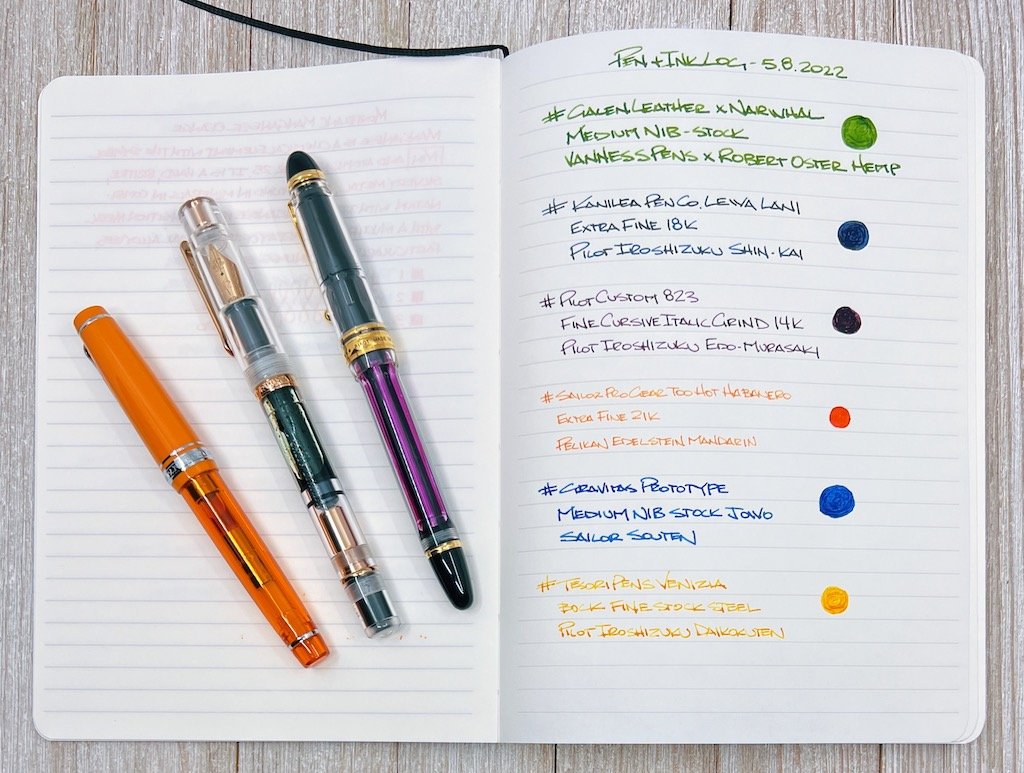 PEN + INK LOG - 5.8.2022
# GALEN LEATHER X NARWHAL
MEDIUM NIB - STOCK
VANNESS PENS X ROBERT OSTER HEMP
# KANILEA PEN CO. LEWA LANI
EXTRA FINE 18K
PILOT IROSHIZUKU SHIN-KAI
# PILOT CUSTOM 823
FINE CURSIVE ITALIC GRIND 14K
PILOT IROSHIZUKU EDO-MURASAKI
# SAILOR PRO GEAR TOO HOT HABANERO
EXTRA FINE 21K
PELIKAN EDELSTEIN MANDARIN
# GRAVITAS PROTOTYPE
MEDIUM NIB STOCK JOWO
SAILOR SOUTEN
# TESORI PENS VENIZIA
BOCK FINE STOCK STEEL
PILOT IROSHIZUKU DAIKOKUTEN